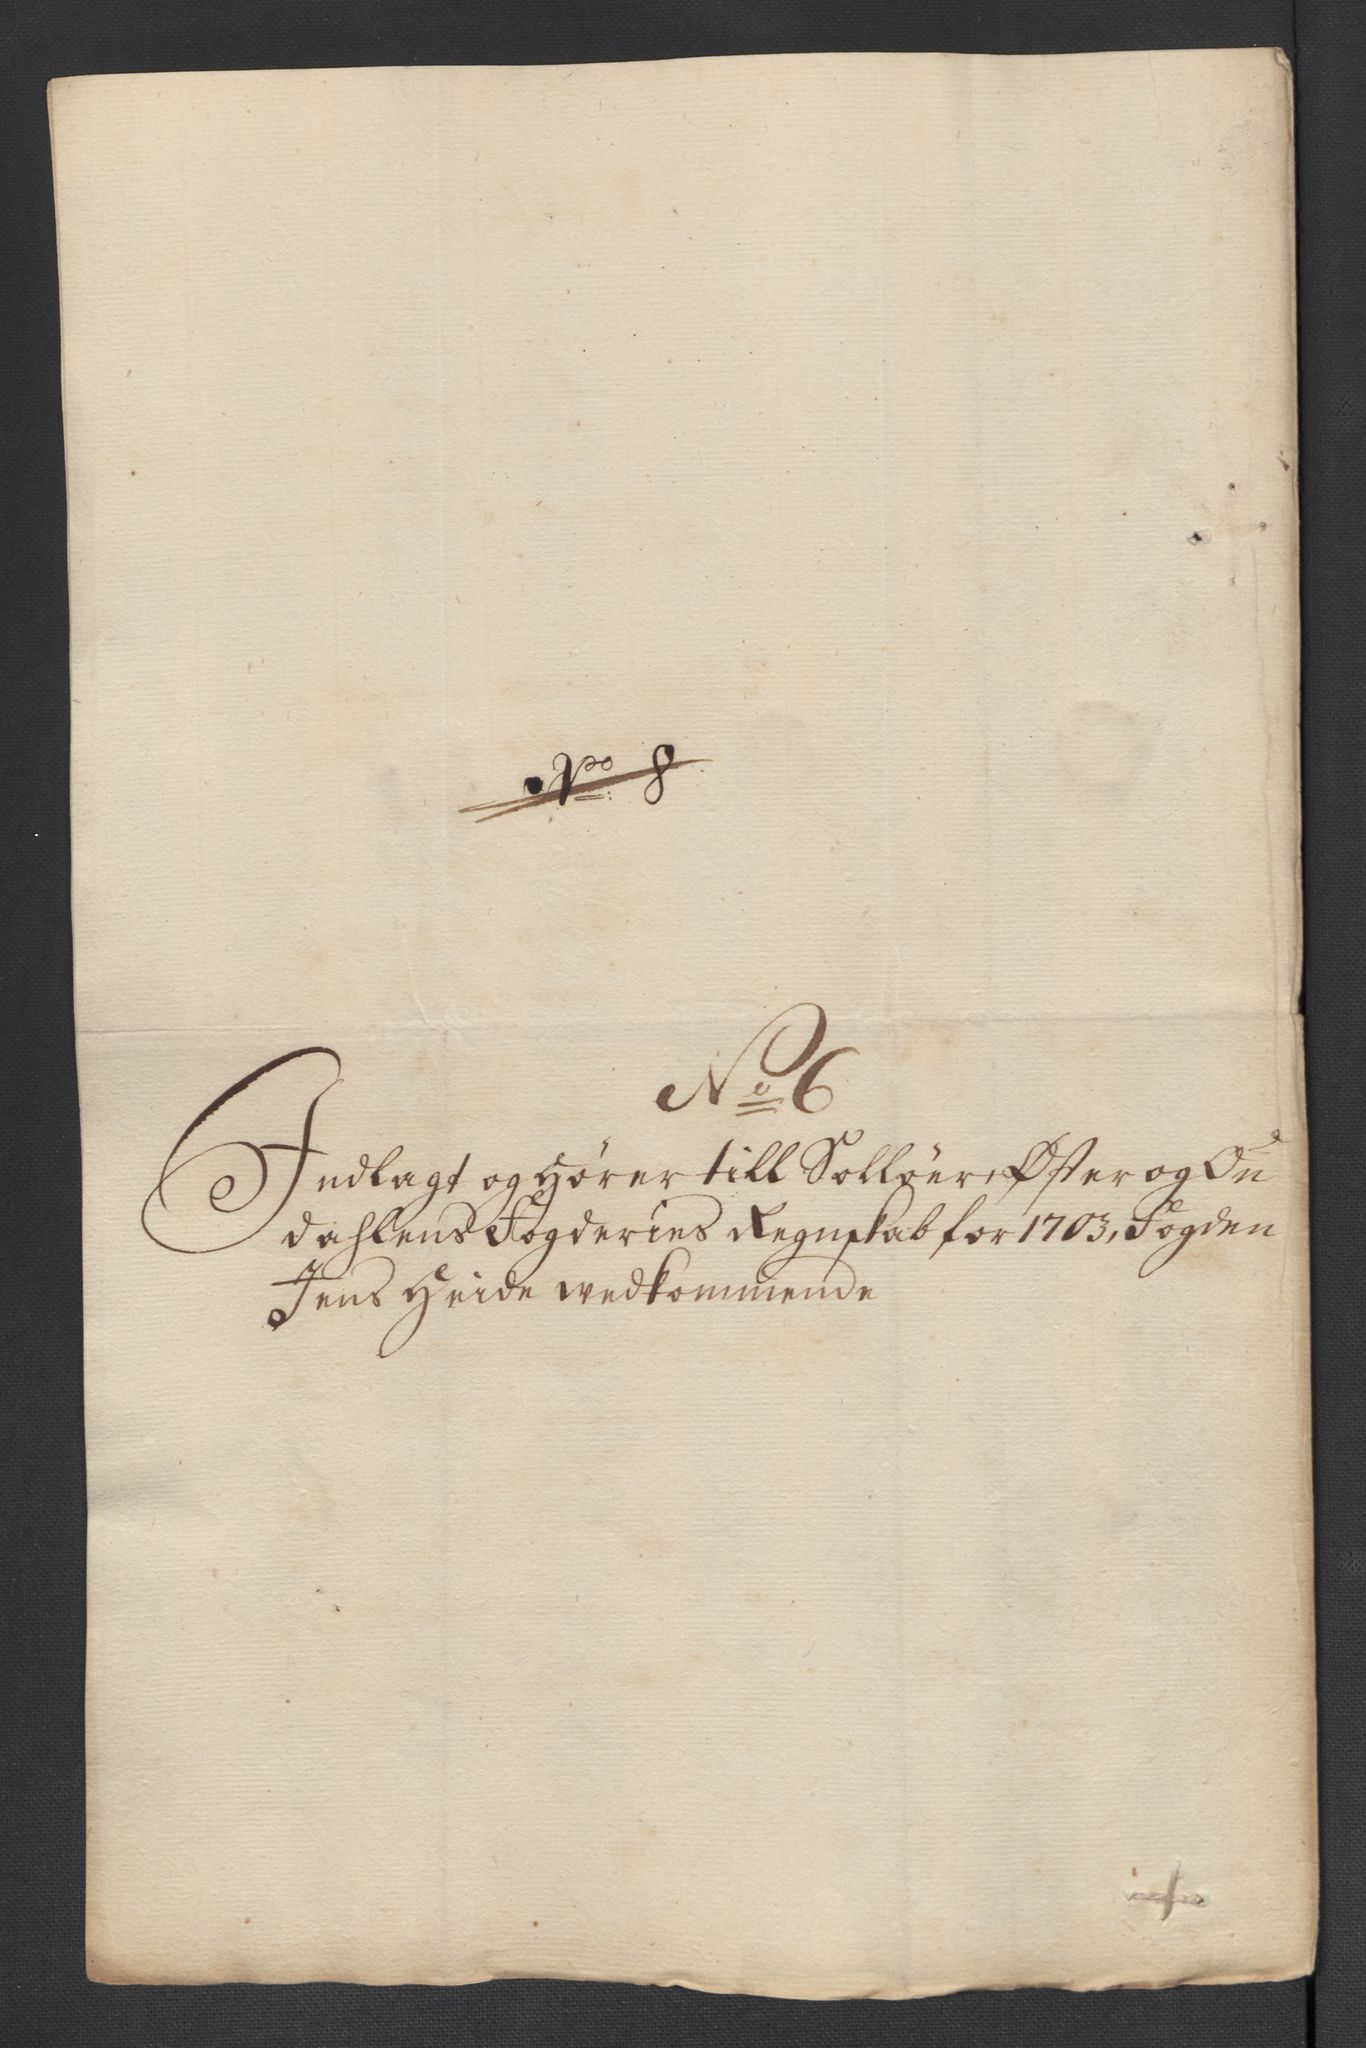 No 8
No 6
Indlagt og Hörer till Sollöer, Øster og Ou
dahlens Fogderies Regnskab for 1703, Fogden
Jens Heide wedkommende